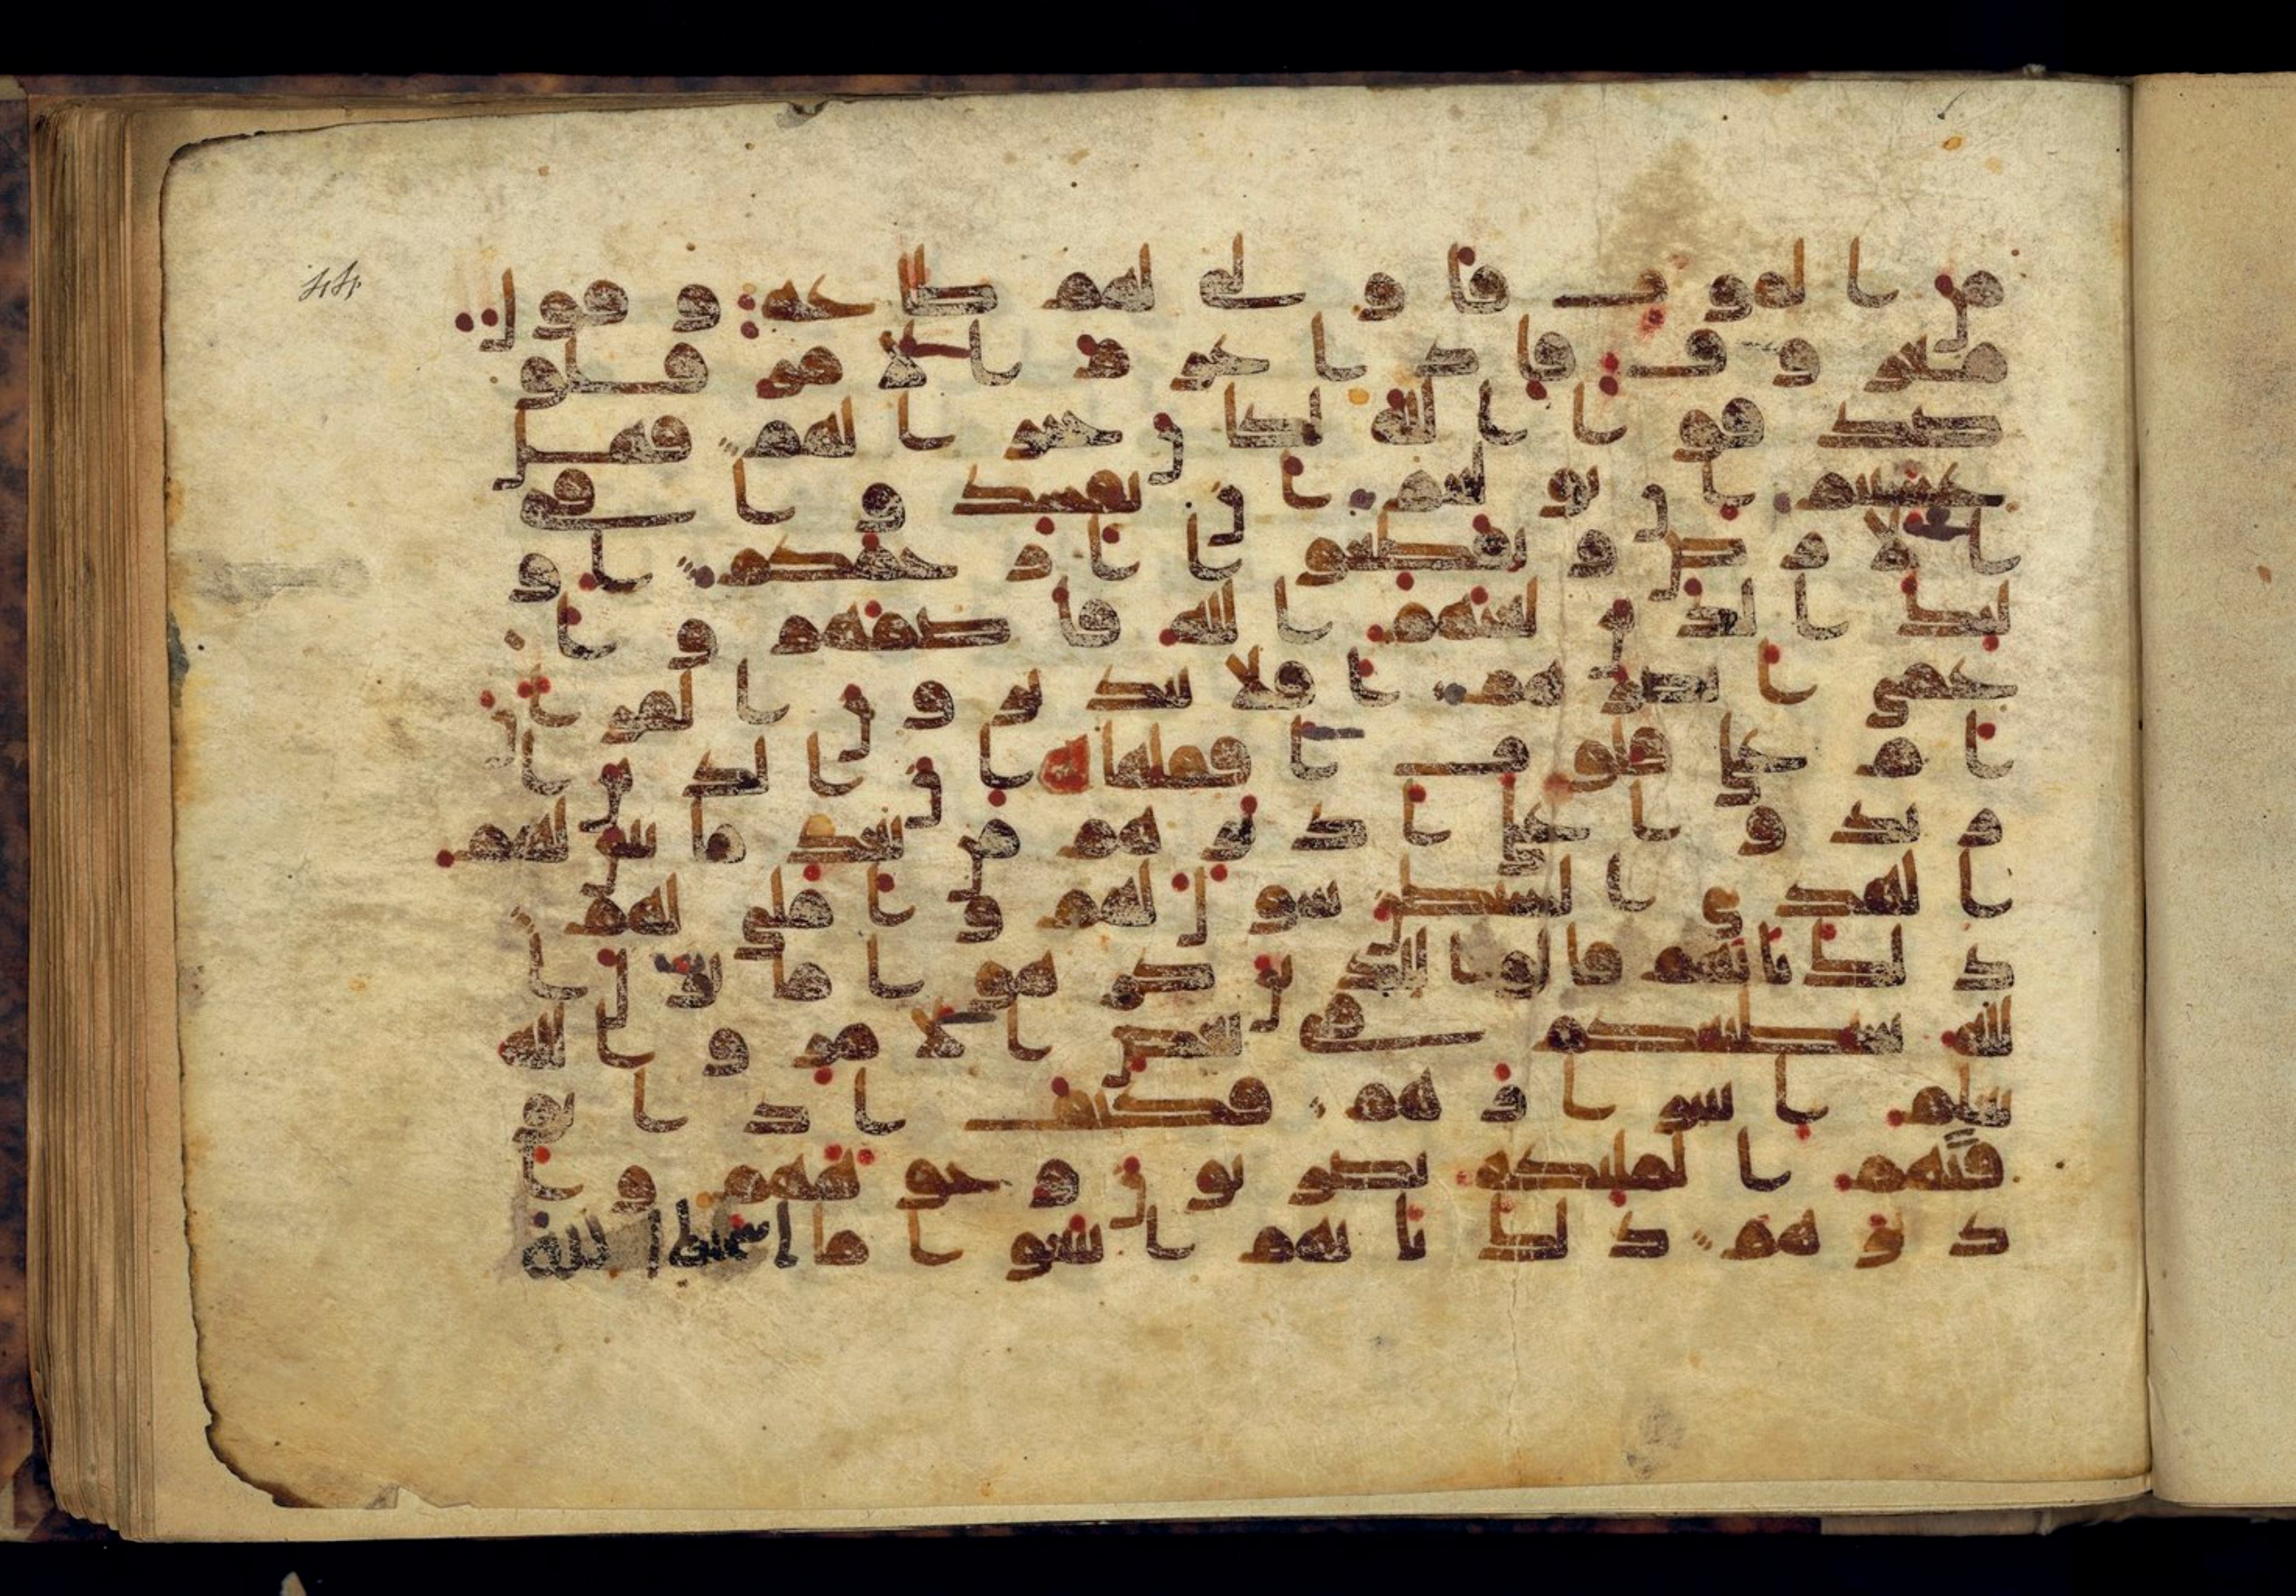 من الموت فاولى لهم طاعة وقول
معروف فاذا عزم الامر فلو
صدقوا الله لكان خيرا لهم فهل
عسيتم ان توليتم ان تفسدوا في
الارض وتقطعوا ارحامكم او
لئك الذين لعنهم الله فاصمهم وا
عمى ابصرهم افلا يتدبرون القران
ام على قلوب اقفالها ان الذين ا
رتدوا على ادبرهم من بعد ما تبين لهم
الهدى الشيطن سول لهم واملى لهم
ذلك بانهم قالوا للذين كرهوا ما نزل ا
لله سنطيعكم في بعض الامر والله
يعلم اسرارهم فكيف اذا تو
فتهم الملئكة يضربون وجوههم وا
دبرهم ذلك بانهم اتبعوا ما اسخط الله